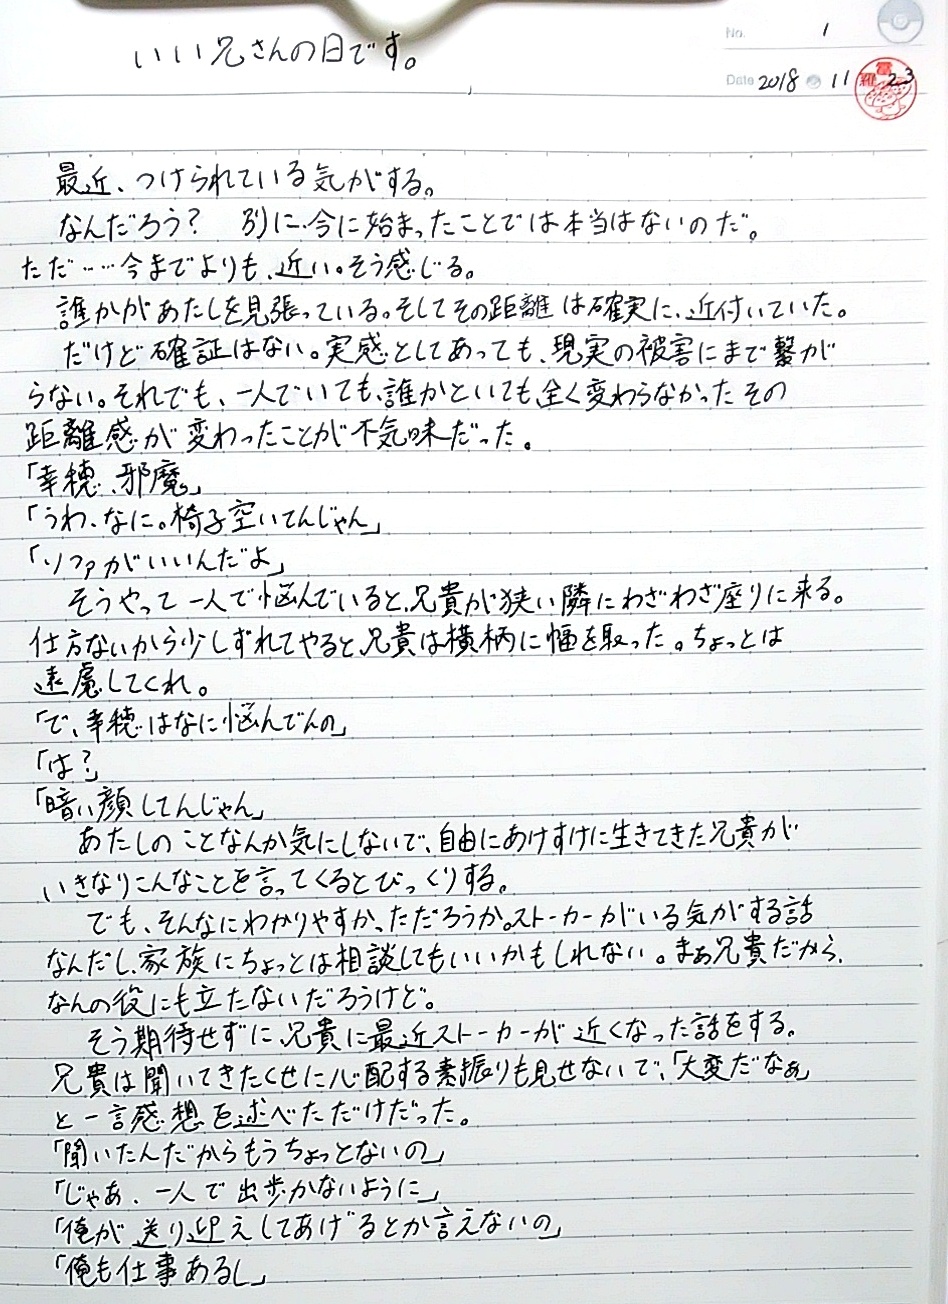 いい兄さんの日です。
No. 1
Date 2018 11 23
最近、つけられている気がする。
なんだろう? 別に、今に始まったことでは本当はないのだ。
ただ……今までよりも、近い。そう感じる。
誰かがあたしを見張っている。そしてその距離は確実に、近付いていた。
だけど確証はない。実感としてあっても、現実の被害にまで繋が
らない。それでも、一人でいても、誰かといても全く変わらなかったその
距離感が変わったことが不気味だった。
「幸穂、邪魔」
「うわ、なに。椅子空いてんじゃん」
「ソファがいいんだよ」
そうやって一人で悩んでいると、兄貴が狭い隣にわざわざ座りに来る。
仕方ないから少しずれてやると、兄貴は横柄に幅を取った。ちょっとは
遠慮してくれ。
「で、幸穂はなに悩んでんの」
「は?」
「暗い顔してんじゃん」
あたしのことなんか気にしないで、自由にあけすけに生きてきた兄貴が
いきなりこんなことを言ってくるとびっくりする。
でも、そんなにわかりやすかっただろうか。ストーカーがいる気がする話
なんだし、家族にちょっとは相談してもいいかもしれない。まぁ兄貴だから、
なんの役にも立たないだろうけど。
そう期待せずに、兄貴に最近ストーカーが近くなった話をする。
兄貴は聞いてきたくせに心配する素振りも見せないで、「大変だなぁ」
と一言感想を述べただけだった。
「聞いたんだからもうちょっとないの」
「じゃあ、一人で出歩かないように」
「俺が送り迎えしてあげるとか言えないの」
「俺も仕事あるし」